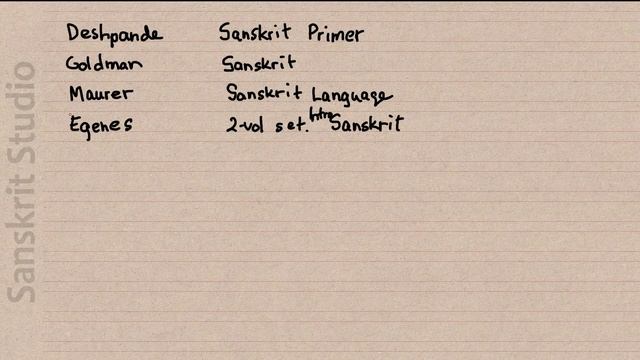 Deshpande Sanskrit Primer
Goldman Sanskrit
Maurer Sanskrit Language
Egenes 2-vol set. Intro Sanskrit
Sanskrit Studio